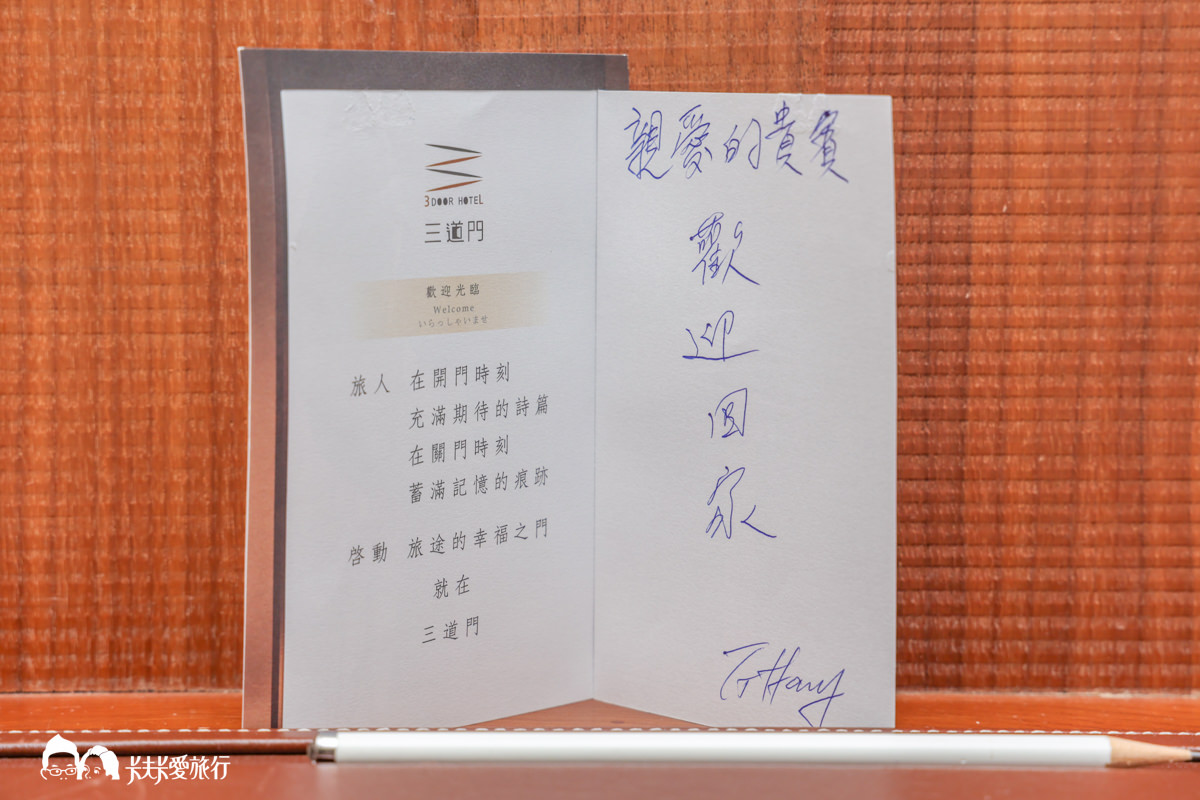 3 DOOR HOTEL
三道門
歡迎光臨
Welcome
いらっしゃいませ
旅人 在開門時刻
充滿期待的詩篇
在關門時刻
蓄滿記憶的痕跡
啓動 旅途的幸福之門
就在
三道門
親愛的貴賓
歡
迎
回
家
Tiffany
卡夫卡愛旅行